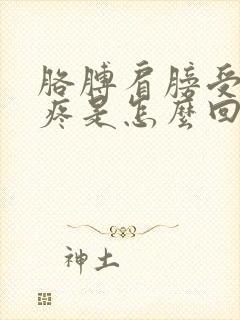 胳膊肩膀受
疼是怎麼回
神土